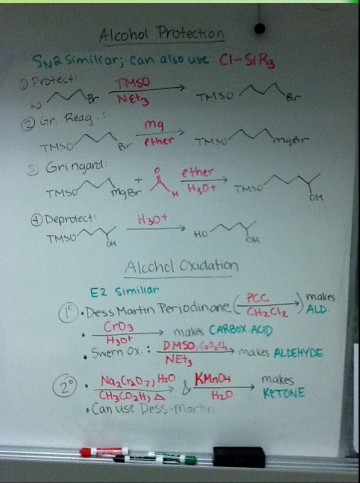 Alcohol Protection
SN2 similiar; can also use Cl-SiR3
① Protect:
HO Br TMSO NEt3 TMSO Br
② Gr. Reag.:
TMSO Br mg ether TMSO mgBr
③ Gringard:
TMSO mgBr + H ether H3O+ TMSO OH
④ Deprotect:
TMSO OH H3O+ HO OH
Alcohol Oxidation
E2 Similiar
1° • Dess Martin Periodinane ( PCC CH2Cl2 ) makes ALD.
• CrO3 H3O+ makes CARBOX. ACID
• Swern Ox.: DMSO, NEt3 makes ALDEHYDE
2° • Na2Cr2O7, H2O CH3CO2H, Δ & KMnO4 H2O makes KETONE
• Can use Dess-Martin